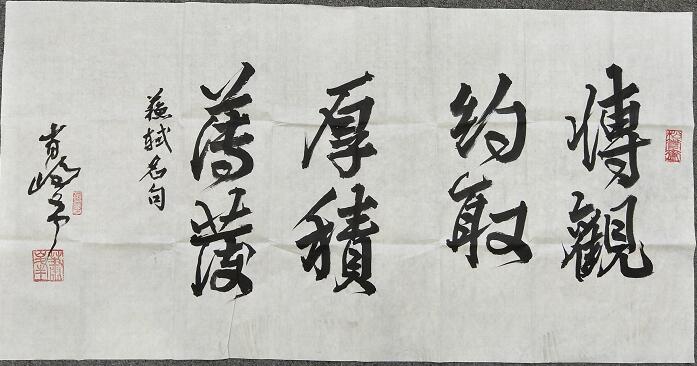 博觀
約取
厚積
薄發
蘇軾名句